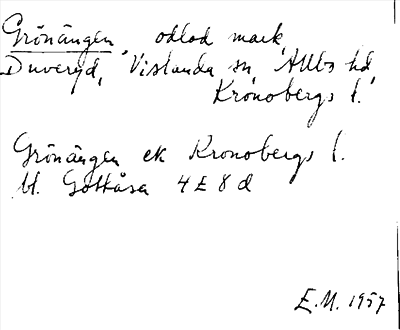 Grönängen, odlad mark,
Duveryd, Vislanda sn, Allbo hd,
Kronobergs l.
Grönängen ek Kronobergs l.
bl. Gottåsa 4E8d
E.M. 1957